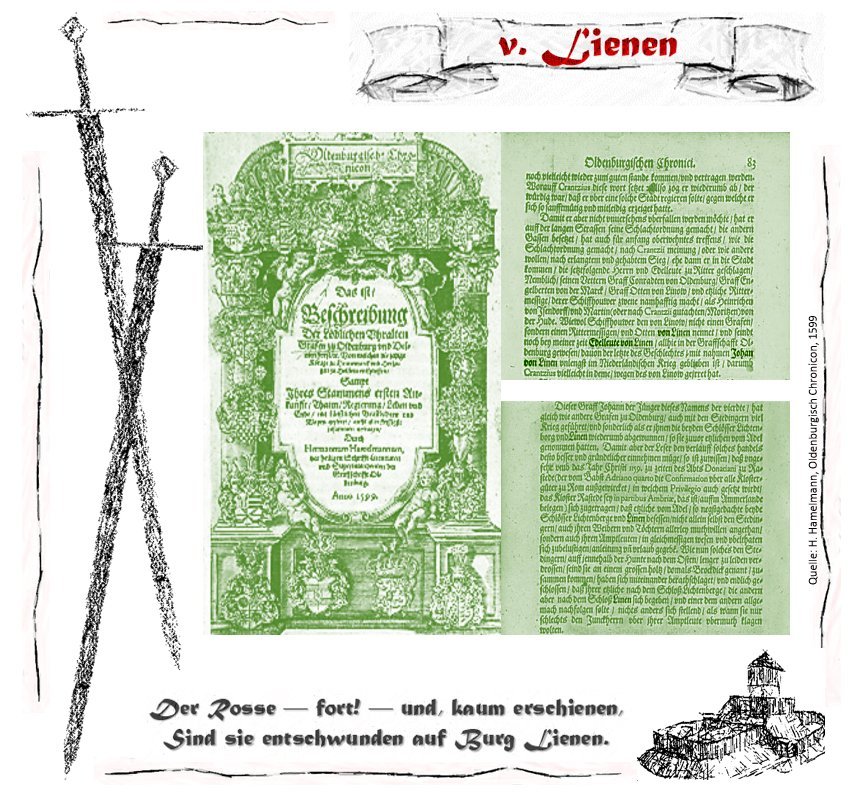 v. Lienen
Oldenburgisch Chro-
nicon
Das ist/
Beschreibung
Der Löblichen Vhralten
Grafen zu Oldenburg vnd Del-
Sampt
Ihres Stammens ersten An-
kunfft/ Thaten/ Regierung/ Leben vnd
Ende/ mit künstlichen Brustbildern vnd
Durch
Hermannum Hamelmannum,
der heiligen Schrifft Licentiaten
vnd Superintendenten der
Graffschafft Ol-
denburg.
Anno 1599.
Oldenburgischen Chronici. 83
noch vielleicht wieder zum guten stande kommen/vnd vertragen werden.
Worauff Crantzius diese wort setzet: Also zog er wiederumb ab / der
würdig war/ daß er vber eine solche Stadt regieren solte/ gegen welche er
sich so sanfftmütig vnd mitleidig erzeiget hatte.
Damit er aber nicht vnuersehens vberfallen werden möchte / hat er
auff der langen Strassen seine Schlachtordnung gemacht / die andern
Gassen besetzet / hat auch für anfang oberwehntes treffens / wie die
Schlachtordnung gemacht / nach Crantzii meinung / oder wie andere
wollen/ nach erlangtem vnd gehabtem Sieg / ehe dann er in die Stadt
kommen / die jetztfolgende Herrn vnd Edelleute zu Ritter geschlagen/
Nemblich/ seinen Vettern Graff Conradten von Oldenburg/ Graff En-
gelberten von der Marck / Graff Otten von Linow / vnd etzliche Ritter-
messige/ derer Schiffhouwer zweene namhafftig macht / als Heinrichen
von Isendorff/ vnd Martin (oder nach Crantzii gutachten/ Moritzen) von
der Hude. Wiewol Schiffhouwer den von Linow/ nicht einen Grafen/
sondern einen Rittermessigen/ vnd Otten von Linen nennet / vnd seindt
noch bey meiner zeit Edelleute von Linen / allhie in der Graffschafft Ol-
denburg gewesen/ dauon der letzte des Geschlechtes / mit nahmen Johan
von Linen vnlengst im Niederländischen Krieg geblieben ist / darumb
Crantzius vielleicht in deme/ wegen des von Linow geirret hat.
Dieser Graff Johann der Jünger dieses Namens der vierdte / hat
gleich wie andere Grafen zu Oldenburg / auch mit den Stedingern viel
Krieg geführet/ vnd sonderlich aber ihnen die beyden Schlösser Lichten-
berg vnd Linen wiederumb abgewunnen / so sie zuuor etzlichen vom Adel
genommen hatten. Damit aber der Leser den verlauff solches handels
desto besser vnd gründlicher einnehmen müge/ so ist zuwissen/ daß vnge-
fehr vmb das Jahr Christi 1159. zu zeiten des Abts Donatiani zu Ra-
stede/ der vom Babst Adriano quarto die Confirmation vber alle Klöster-
güter zu Rom außgewircket / in welchem Privilegio auch gesetzt wirdt/
das Kloster Rastede sey in partibus Ambriæ, das ist/ auff in Ammerlande
belegen) sich zugetragen/ daß etzliche vom Adel / so negstgedachte beyde
Schlösser Lichtenberge vnd Linen besessen/ nicht allein selbst den Stedin-
gern/ auch ihren Weibern vnd Töchtern allerley muthwillen angethan/
sondern auch ihren Amptleuten / in gleichmessigen wesen vnd vbelthaten
sich zubelustigen/ anleitung vñ vrlaub gegeben. Wie nun solches den Ste-
dingern/ auff jennehalb der Hunte nach dem Osten/ lenger zu leiden ver-
drossen/ seind sie an einem grossen holtz / domals Brockdick genant / zu-
sammen kommen/ haben sich miteinander berathschlaget / vnd endlich ge-
schlossen / daß ihrer etzliche nach dem Schloß Lichtenberge / die andern
aber nach dem Schloß Linen sich begeben / vnd einer dem andern allge-
mach nachfolgen solte / niches anders sich stellend / als wann sie nur
schlechts den Junckherrn vber ihrer Amptleute vbermuth klagen
wolten.
Quelle: H. Hamelmann, Oldenburgisch Chronicon, 1599
Der Rosse — fort! — und, kaum erschienen,
Sind sie entschwunden auf Burg Lienen.